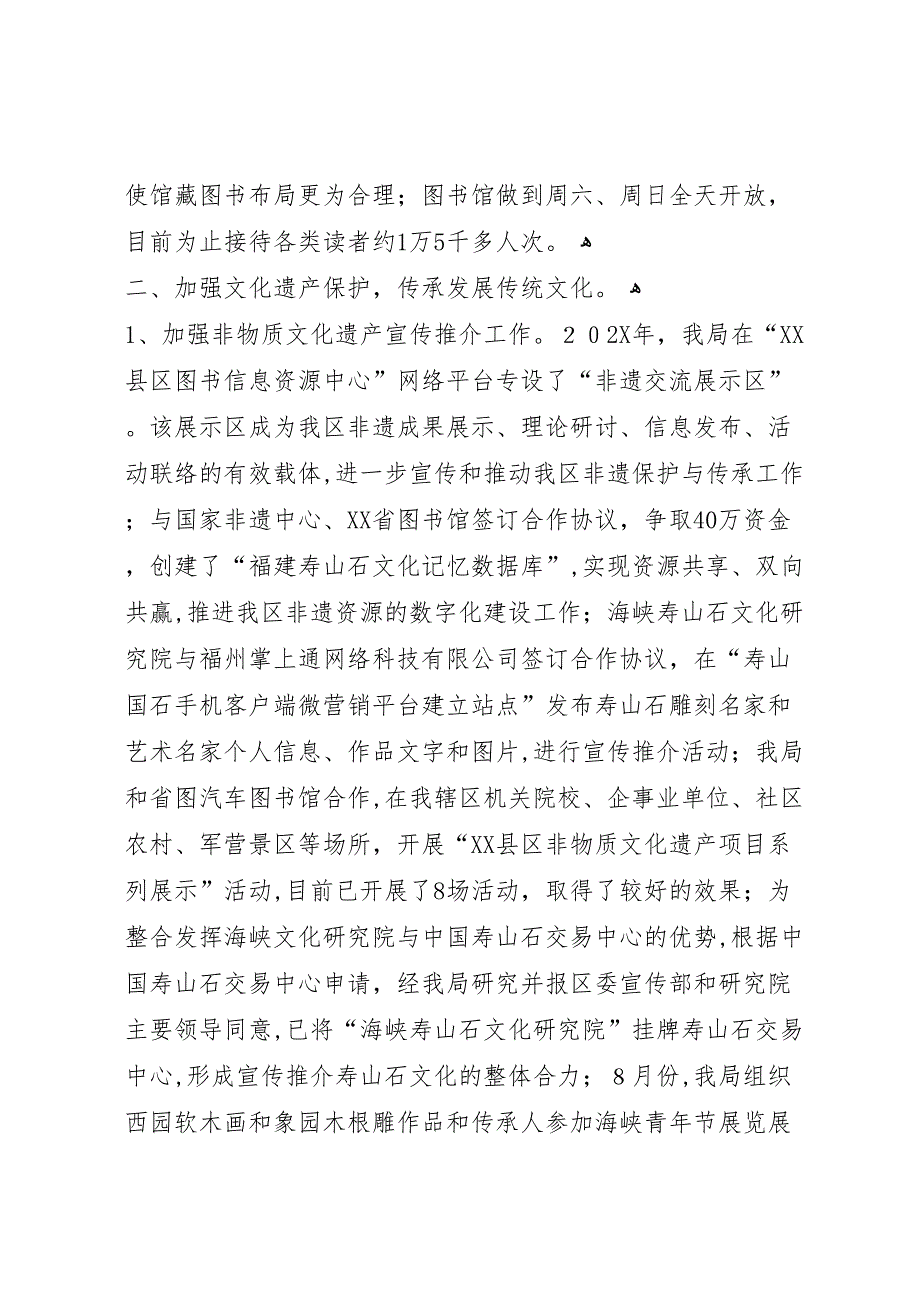 使馆藏图书布局更为合理；图书馆做到周六、周日全天开放，
目前为止接待各类读者约1万5千多人次。 ﻫ
二、加强文化遗产保护，传承发展传统文化。 ﻫ
1、加强非物质文化遗产宣传推介工作。２０2X年，我局在“XX
县区图书信息资源中心”网络平台专设了“非遗交流展示区”
。该展示区成为我区非遗成果展示、理论研讨、信息发布、活
动联络的有效载体,进一步宣传和推动我区非遗保护与传承工作
；与国家非遗中心、XX省图书馆签订合作协议，争取40万资金
，创建了“福建寿山石文化记忆数据库”,实现资源共享、双向
共赢,推进我区非遗资源的数字化建设工作；海峡寿山石文化研
究院与福州掌上通网络科技有限公司签订合作协议，在“寿山
国石手机客户端微营销平台建立站点”发布寿山石雕刻名家和
艺术名家个人信息、作品文字和图片,进行宣传推介活动；我局
和省图汽车图书馆合作,在我辖区机关院校、企事业单位、社区
农村、军营景区等场所，开展“XX县区非物质文化遗产项目系
列展示”活动,目前已开展了8场活动，取得了较好的效果；为
整合发挥海峡文化研究院与中国寿山石交易中心的优势,根据中
国寿山石交易中心申请，经我局研究并报区委宣传部和研究院
主要领导同意,已将“海峡寿山石文化研究院”挂牌寿山石交易
中心,形成宣传推介寿山石文化的整体合力；８月份,我局组织
西园软木画和象园木根雕作品和传承人参加海峡青年节展览展